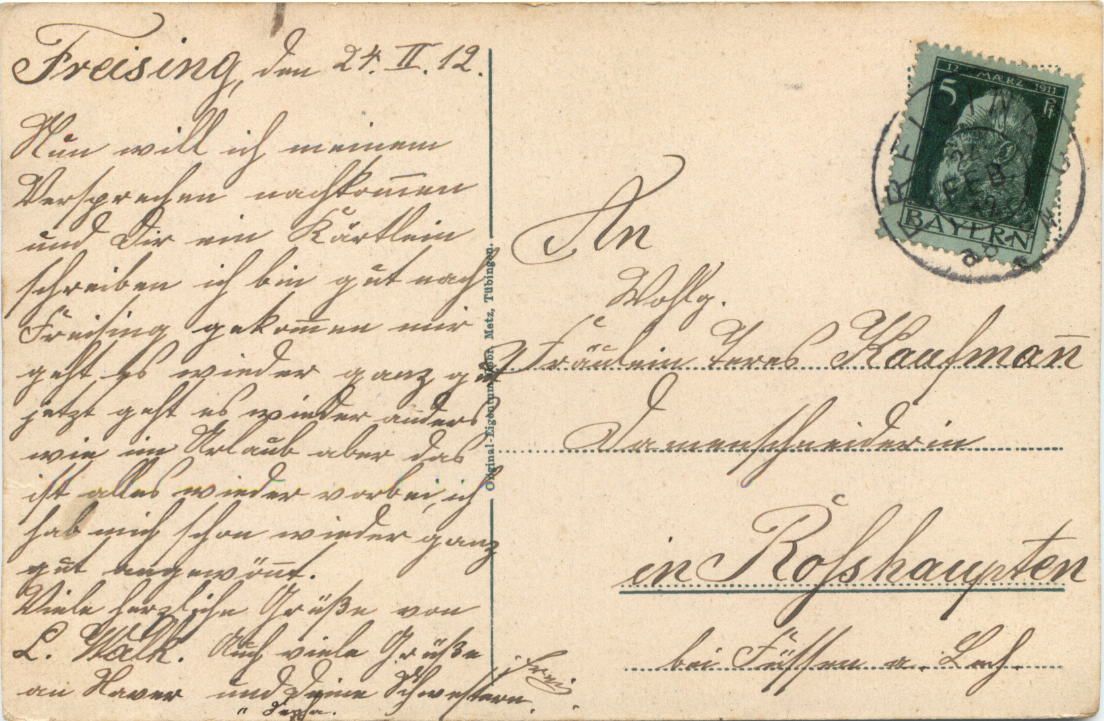 Freising, den 24. II. 12.
Nun will ich meinem
Versprechen nachkom̅en
und Dir ein Kärtlein
schreiben ich bin gut nach
Freising gekom̅en mir
geht es wieder ganz gut
jetzt geht es wieder anders
wie im Urlaub aber das
ist alles wieder vorbei, ich
hab mich schon wieder ganz
gut angewön̅t.
Viele herzliche Grüße von
L. Walk. Auch viele Grüße
an Xaver und Deine Schwestern.
" Sepha.
Original-Eigentum Metz, Tübingen.
12. MÆRZ 1911
5 Pf
BAYERN
FREISING
FEB.
An
Wohlg.
Fräulein Teres Kaufman̅
Damenschneiderin
in Rosshaupten
bei Füssen a. Lech.